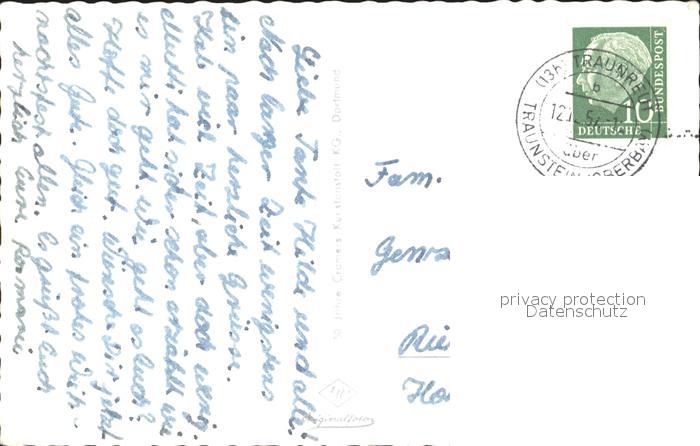 Liebe Tante Hilde und alle!
Nach langer Zeit wenigstens
ein paar herzliche Grüsse.
Hab viel Zeit, aber doch wenig
Mutti hat sicher schon erzählt wie
es mir geht. Wie geht es Euch?
Hoffe doch gut. Wünsche Dir jetzt
alles Gute. Gleich ein frohes Weih-
nachtsfest allen. Es grüßt Euch
herzlich Eure
50 Jahre Cramers Kunstanstalt KG., Dortmund
Originalfoto
Fam.
(13b) TRAUNREUT
b
TRAUNSTEIN (OBERBAY)
über
10
DEUTSCHE
BUNDESPOST
privacy protection
Datenschutz